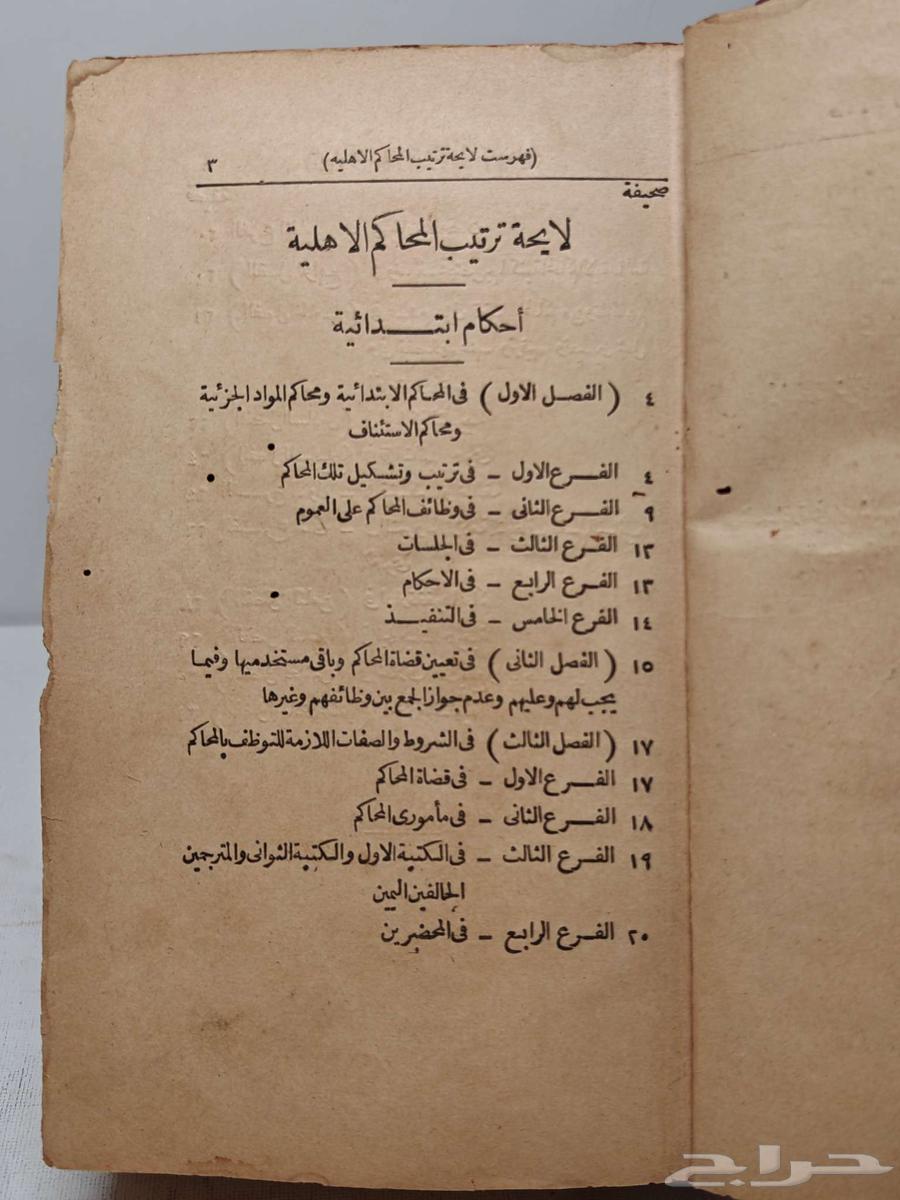 (فهرست لايحة ترتيب المحاكم الاهليه) ٣
صحيفة
لايحة ترتيب المحاكم الاهلية
أحكام ابتـــدائية
٤ (الفصل الاول) فى المحاكم الابتدائية ومحاكم المواد الجزئية
ومحاكم الاستئناف
٤ الفــرع الاول – فى ترتيب وتشكيل تلك المحاكم
٩ الفــرع الثانى – فى وظائف المحاكم على العموم
١٣ الفــرع الثالث – فى الجلسات
١٣ الفــرع الرابع – فى الاحكام
١٤ الفرع الخامس – فى التنفيـــذ
١٥ (الفصل الثانى) فى تعيين قضاة المحاكم وباقى مستخدميها وفيما
يجب لهم وعليهم وعدم جواز الجمع بين وظائفهم وغيرها
١٧ (الفصل الثالث) فى الشروط والصفات اللازمة للتوظف بالمحاكم
١٧ الفــرع الاول – فى قضاة المحاكم
١٨ الفــرع الثانى – فى مأمورى المحاكم
١٩ الفــرع الثالث – فى الكتبة الاول والكتبة الثوانى والمترجمين
الحالفين اليمين
٢٠ الفــرع الرابع – فى المحضرين
حراج